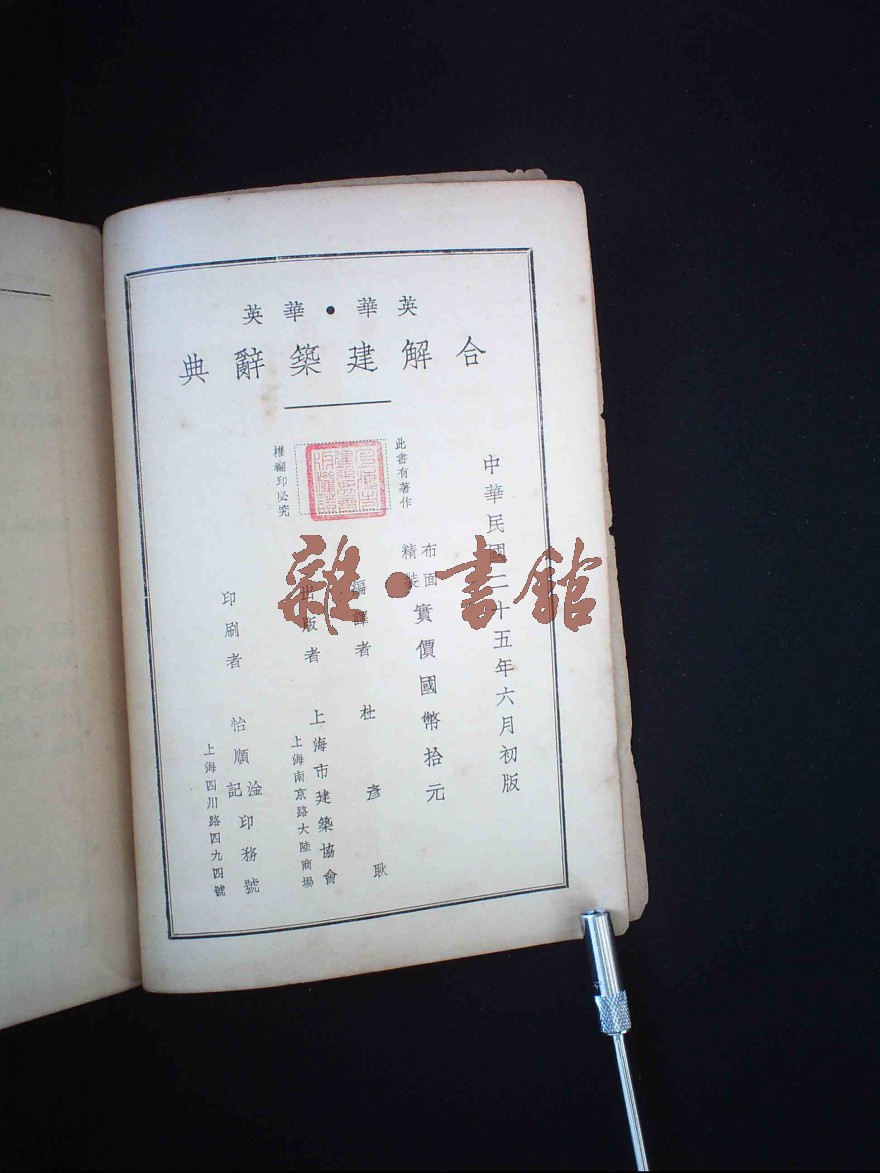 英華•華英
合解建築辭典
中華民國二十五年六月初版
布面
精裝
實價國幣拾元
此書有著作
權翻印必究
編譯者 杜彥耿
出版者 上海市建築協會
上海南京路大陸商場
印刷者 怡順記淦印務號
上海四川路四九四號
雜•書館